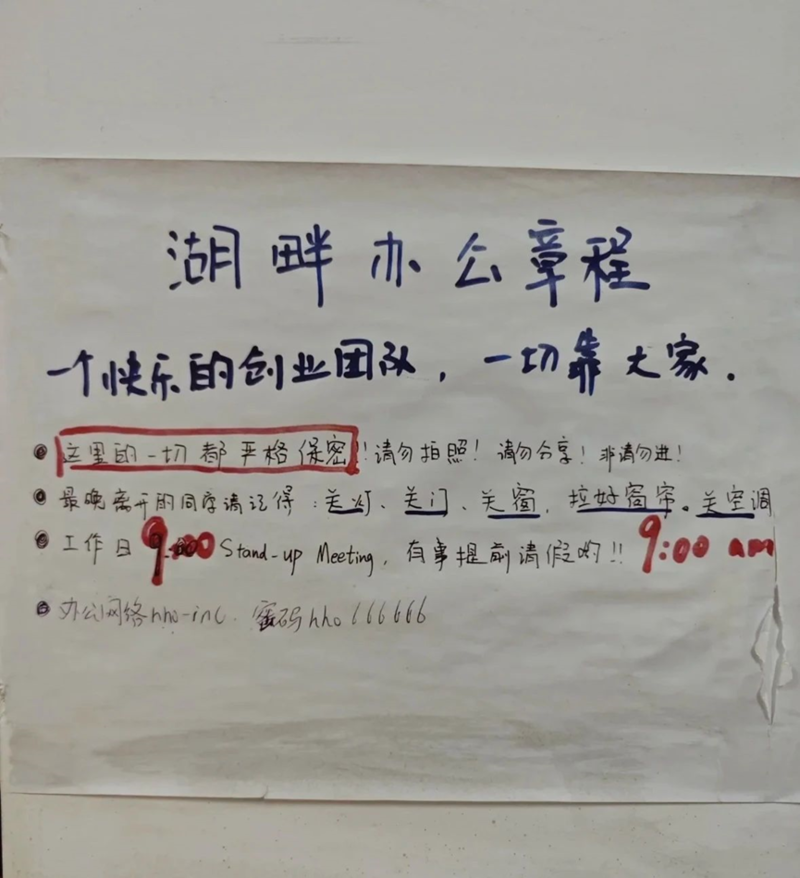 湖畔办公章程
一个快乐的创业团队，一切靠大家.
• 这里的一切都严格保密!!请勿拍照! 请勿分享! 非请勿进!
• 最晚离开的同学请记得：关灯、关门、关窗，拉好窗帘。关空调
• 工作日 9:00 Stand-up Meeting, 有事提前请假哟!! 9:00 am
• 办公网络hho-inc. 密码hho666666